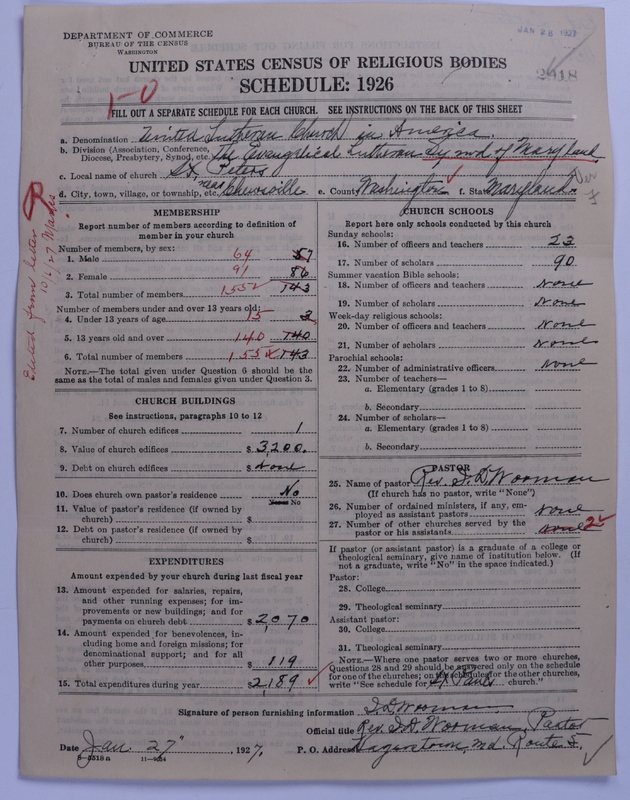 DEPARTMENT OF COMMERCE
BUREAU OF THE CENSUS
WASHINGTON
JAN 28 1927
2918
UNITED STATES CENSUS OF RELIGIOUS BODIES
SCHEDULE: 1926
1-0
FILL OUT A SEPARATE SCHEDULE FOR EACH CHURCH. SEE INSTRUCTIONS ON THE BACK OF THIS SHEET
a. Denomination United Lutheran Church in America.
b. Division (Association, Conference, Diocese, Presbytery, Synod, etc. The Evangelical Lutheran Synod of Maryland
c. Local name of church St. Peters
d. City, town, village, or township, etc. near Chewsville e. County Washington f. State Maryland
Edited from letter 10/6/27
MEMBERSHIP
Report number of members according to definition of
member in your church
Number of members, by sex:
1. Male 64 57
2. Female 91 86
3. Total number of members 155 143
Number of members under and over 13 years old:
4. Under 13 years of age 15 3
5. 13 years old and over 140 140
6. Total number of members 155 143
NOTE.—The total given under Question 6 should be
the same as the total of males and females given under Question 3.
CHURCH BUILDINGS
See instructions, paragraphs 10 to 12
7. Number of church edifices 1
8. Value of church edifices $ 3,200.
9. Debt on church edifices $ None
10. Does church own pastor's residence No
Yes or No
11. Value of pastor's residence (if owned by
church) $
12. Debt on pastor's residence (if owned by
church) $
EXPENDITURES
Amount expended by your church during last fiscal year
13. Amount expended for salaries, repairs,
and other running expenses; for im-
provements or new buildings; and for
payments on church debt $ 2,070
14. Amount expended for benevolences, in-
cluding home and foreign missions; for
denominational support; and for all
other purposes $ 119
15. Total expenditures during year $ 2,189
CHURCH SCHOOLS
Report here only schools conducted by this church
Sunday schools:
16. Number of officers and teachers 23
17. Number of scholars 90
Summer vacation Bible schools:
18. Number of officers and teachers None
19. Number of scholars None
Week-day religious schools:
20. Number of officers and teachers None
21. Number of scholars None
Parochial schools:
22. Number of administrative officers None
23. Number of teachers—
a. Elementary (grades 1 to 8)
b. Secondary
24. Number of scholars—
a. Elementary (grades 1 to 8)
b. Secondary
PASTOR
25. Name of pastor Rev. I. D. Worman
(If church has no pastor, write "None")
26. Number of ordained ministers, if any, em-
ployed as assistant pastors None
27. Number of other churches served by the
pastor or his assistants None 2
If pastor (or assistant pastor) is a graduate of a college or
theological seminary, give name of institution below. (If
not a graduate, write "No" in the space indicated.)
Pastor:
28. College
29. Theological seminary
Assistant pastor:
30. College
31. Theological seminary
NOTE.—Where one pastor serves two or more churches,
Questions 28 and 29 should be answered only on the schedule
for one of the churches; on the schedules for the other churches,
write "See schedule for St. Pauls church."
Signature of person furnishing information I. D. Worman
Official title Rev. I. D. Worman, Pastor
Date Jan. 27" 1927. P. O. Address Hagerstown, Md. Route 5.
8-5518 a 11-9054